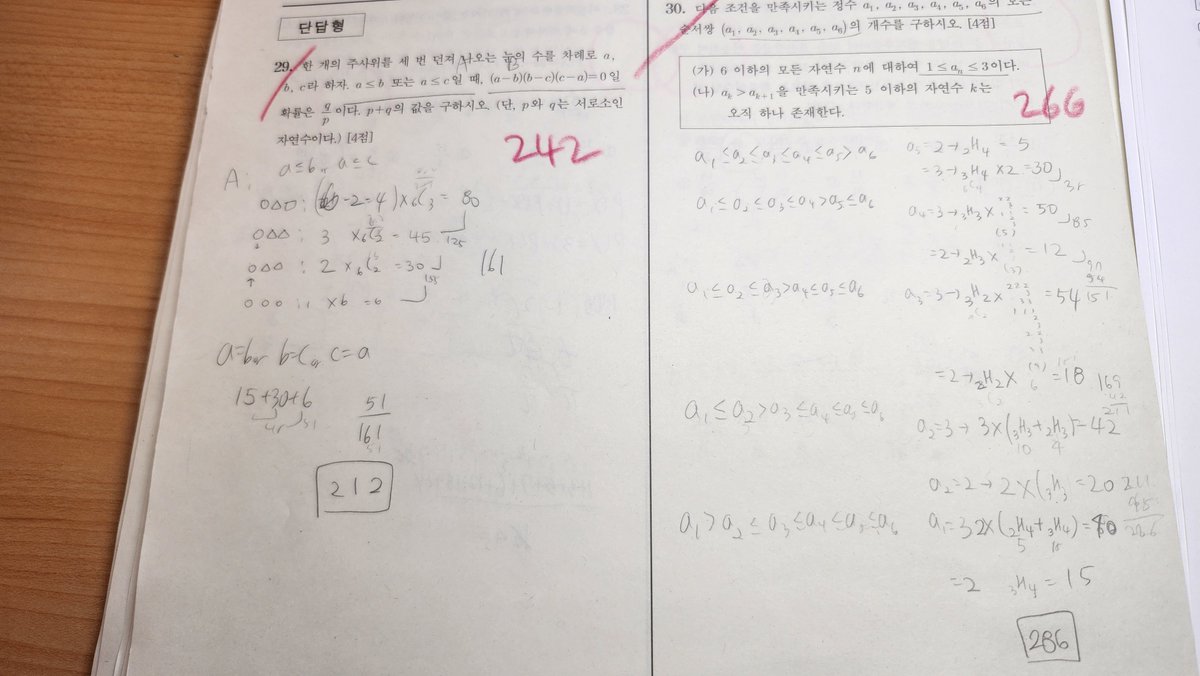 단답형
29. 한 개의 주사위를 세 번 던져 나오는 눈의 수를 차례로 a,
b, c라 하자. a≤b 또는 a≤c일 때, (a-b)(b-c)(c-a)=0일
확률은 q/p이다. p+q의 값을 구하시오. (단, p와 q는 서로소인
자연수이다.) [4점]
242
A: a≤b or a≤c
= 80
3 × ₆C₂ = 45
125
2 × ₆C₂ = 30
155
161
○○○ : 1 × 6 = 6
a=b or b=c or c=a
15+30+6
51
161
212
30. 다음 조건을 만족시키는 정수 a₁, a₂, a₃, a₄, a₅, a₆의 모든
순서쌍 (a₁, a₂, a₃, a₄, a₅, a₆)의 개수를 구하시오. [4점]
(가) 6 이하의 모든 자연수 n에 대하여 1≤aₙ≤3이다.
(나) aₖ>aₖ₊₁을 만족시키는 5 이하의 자연수 k는
오직 하나 존재한다.
266
a₁≤a₂≤a₃≤a₄≤a₅>a₆
a₅=2→₂H₄=5
=3→₃H₄×2=30
35
a₁≤a₂≤a₃≤a₄>a₅≤a₆
a₄=3→₃H₃× =50
85
(5)
=2→₂H₃× =12
(3)
97
54
151
a₁≤a₂≤a₃>a₄≤a₅≤a₆
a₃=3→₃H₂× =54
=2→₂H₂× 6 =18
169
42
211
a₁≤a₂>a₃≤a₄≤a₅≤a₆
a₂=3→3×(₃H₃+₂H₃)=42
10 4
a₂=2→2×(₃H₃)=20
211
a₁>a₂≤a₃≤a₄≤a₅≤a₆
a₁=3 2×(₂H₄+₃H₄)=
5 15
=2 ₃H₄=15
286